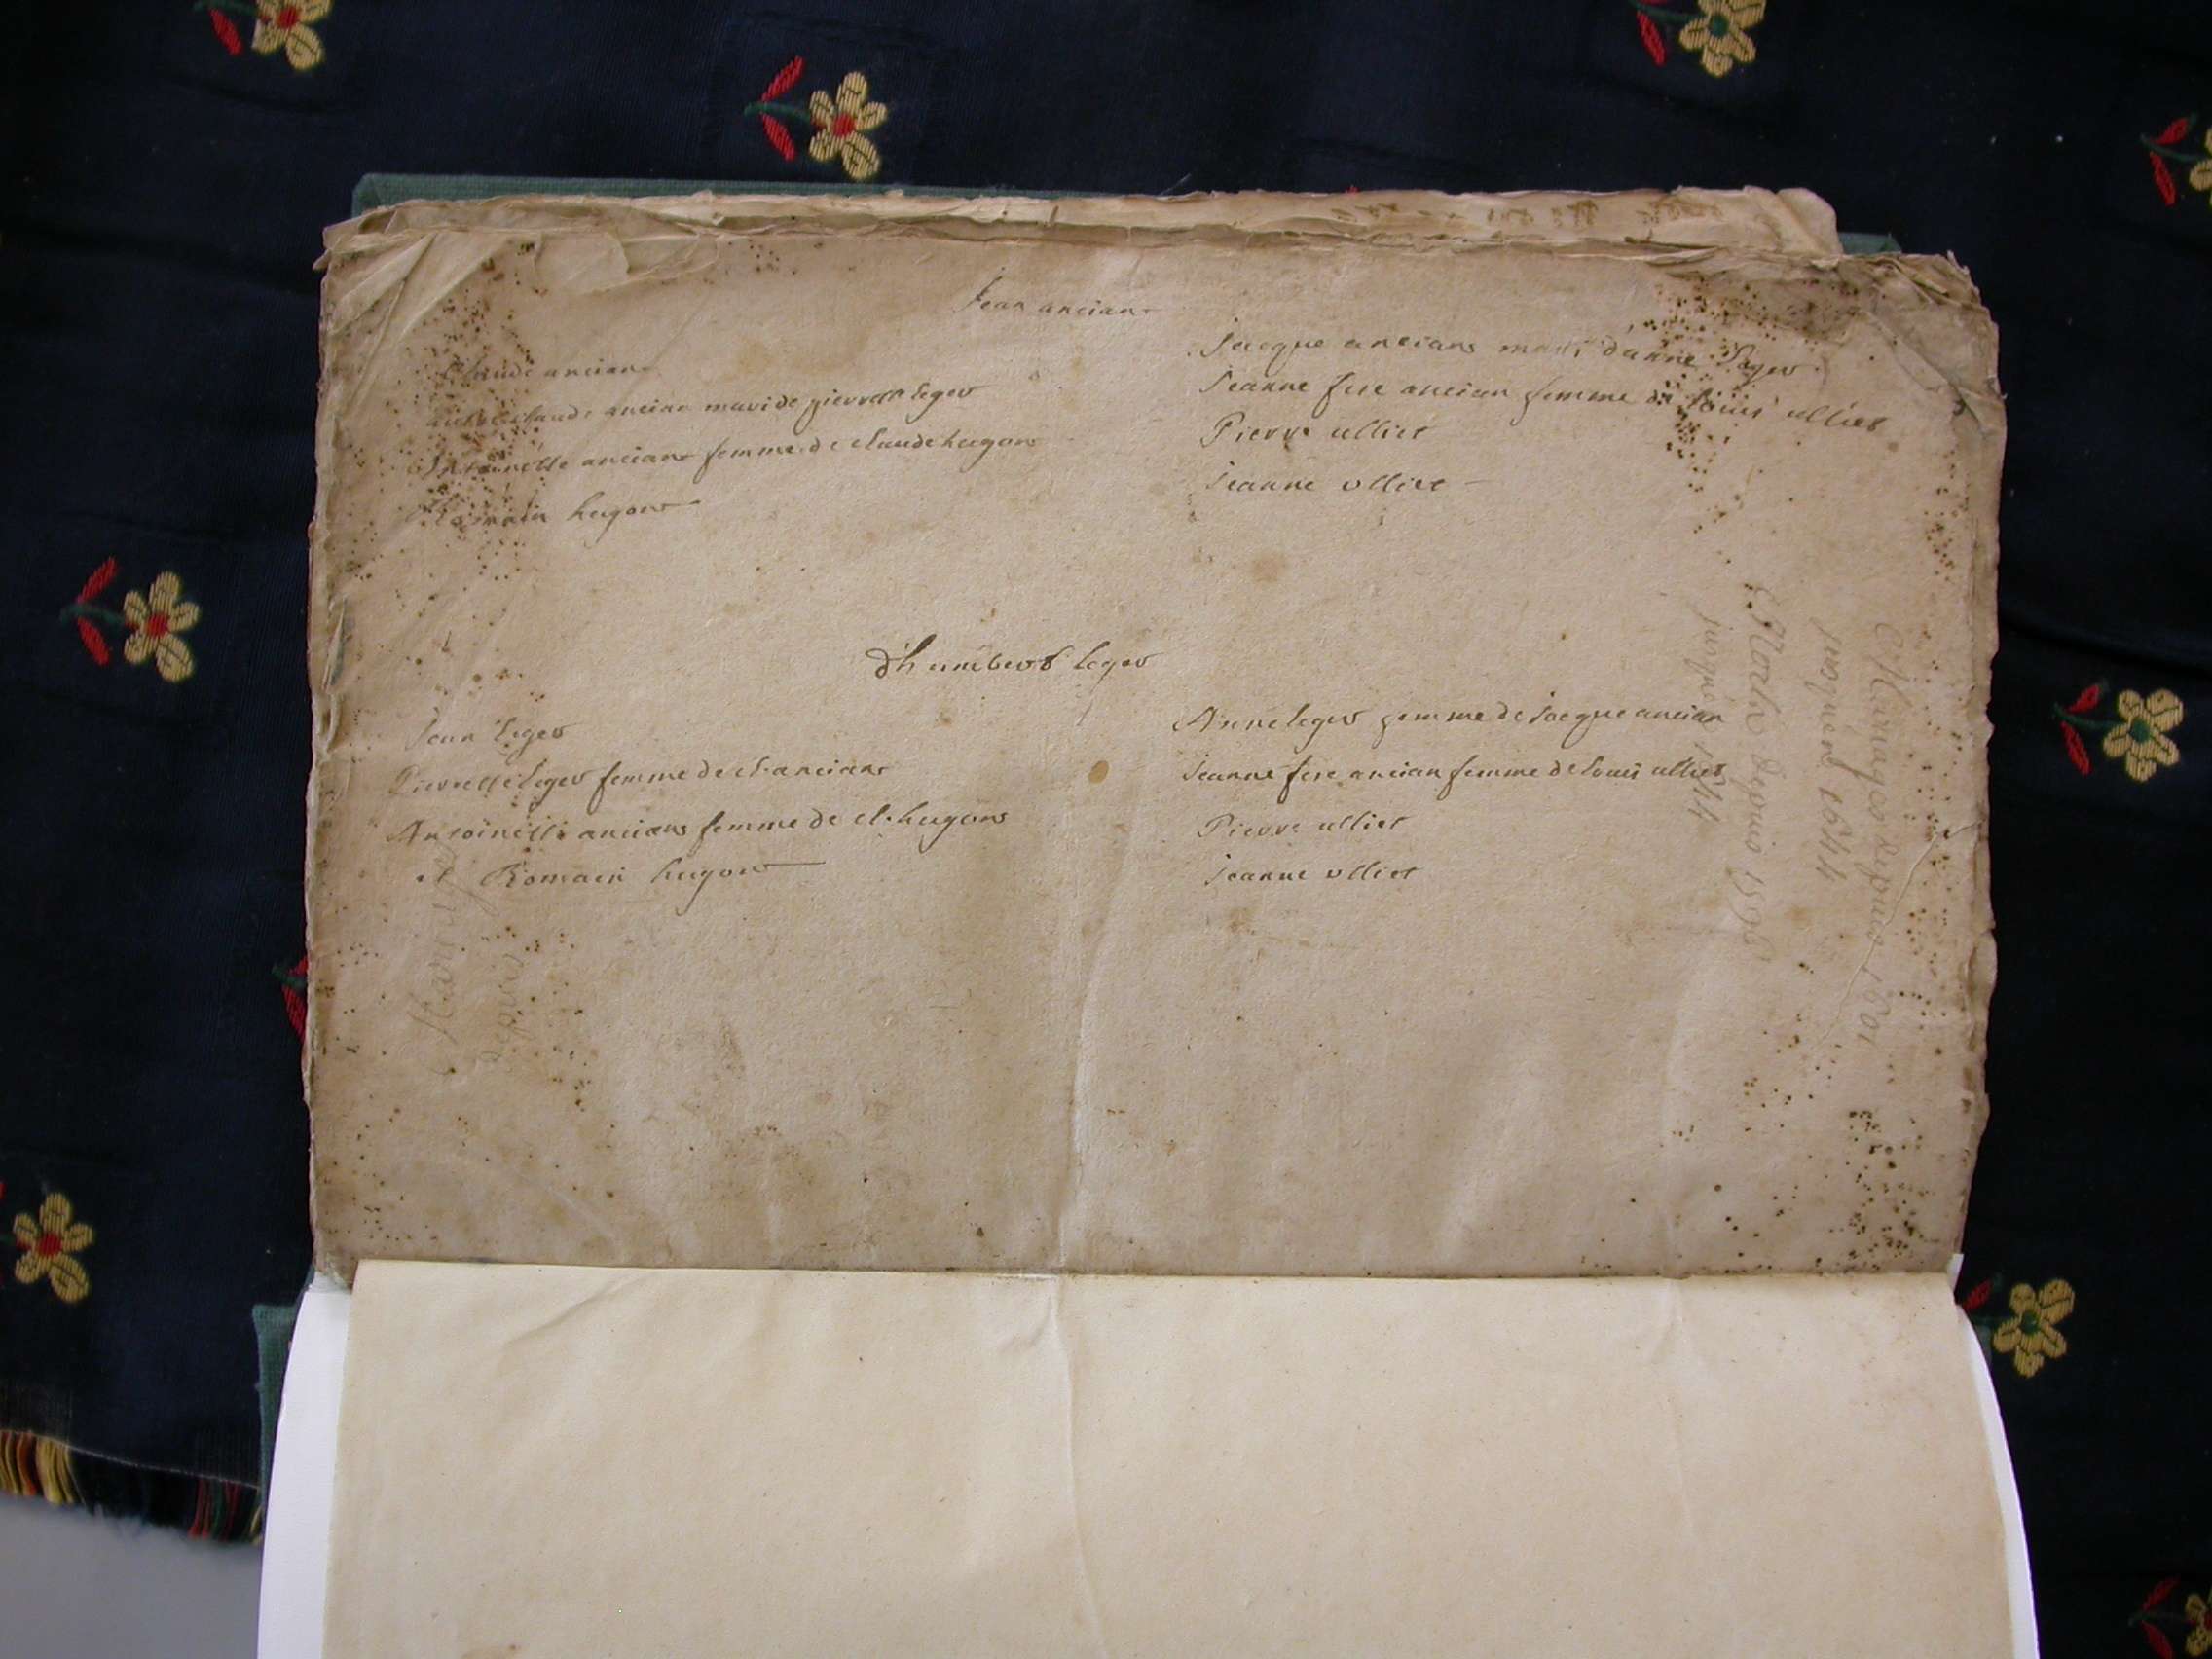 Jean ancian
Claude ancian
autre claude ancian mari de pierrette leger
Antoinette ancian femme de claude hugon
Romain hugon
Jacque ancian mari d'anne Leger
Jeanne fise ancian femme de Louis ulliet
Pierre ulliet
Jeanne ulliet
d'humbert leger
Jean leger
Pierrette leger femme de cl. ancian
Antoinette ancian femme de cl. hugon
et Romain hugon
Anne leger femme de Jacque ancian
Jeanne fise ancian femme de Louis ulliet
Pierre ulliet
Jeanne ulliet
Mariages depuis 1601
jusqu'en 1644
Morts depuis
jusqu'en 1644
depuis